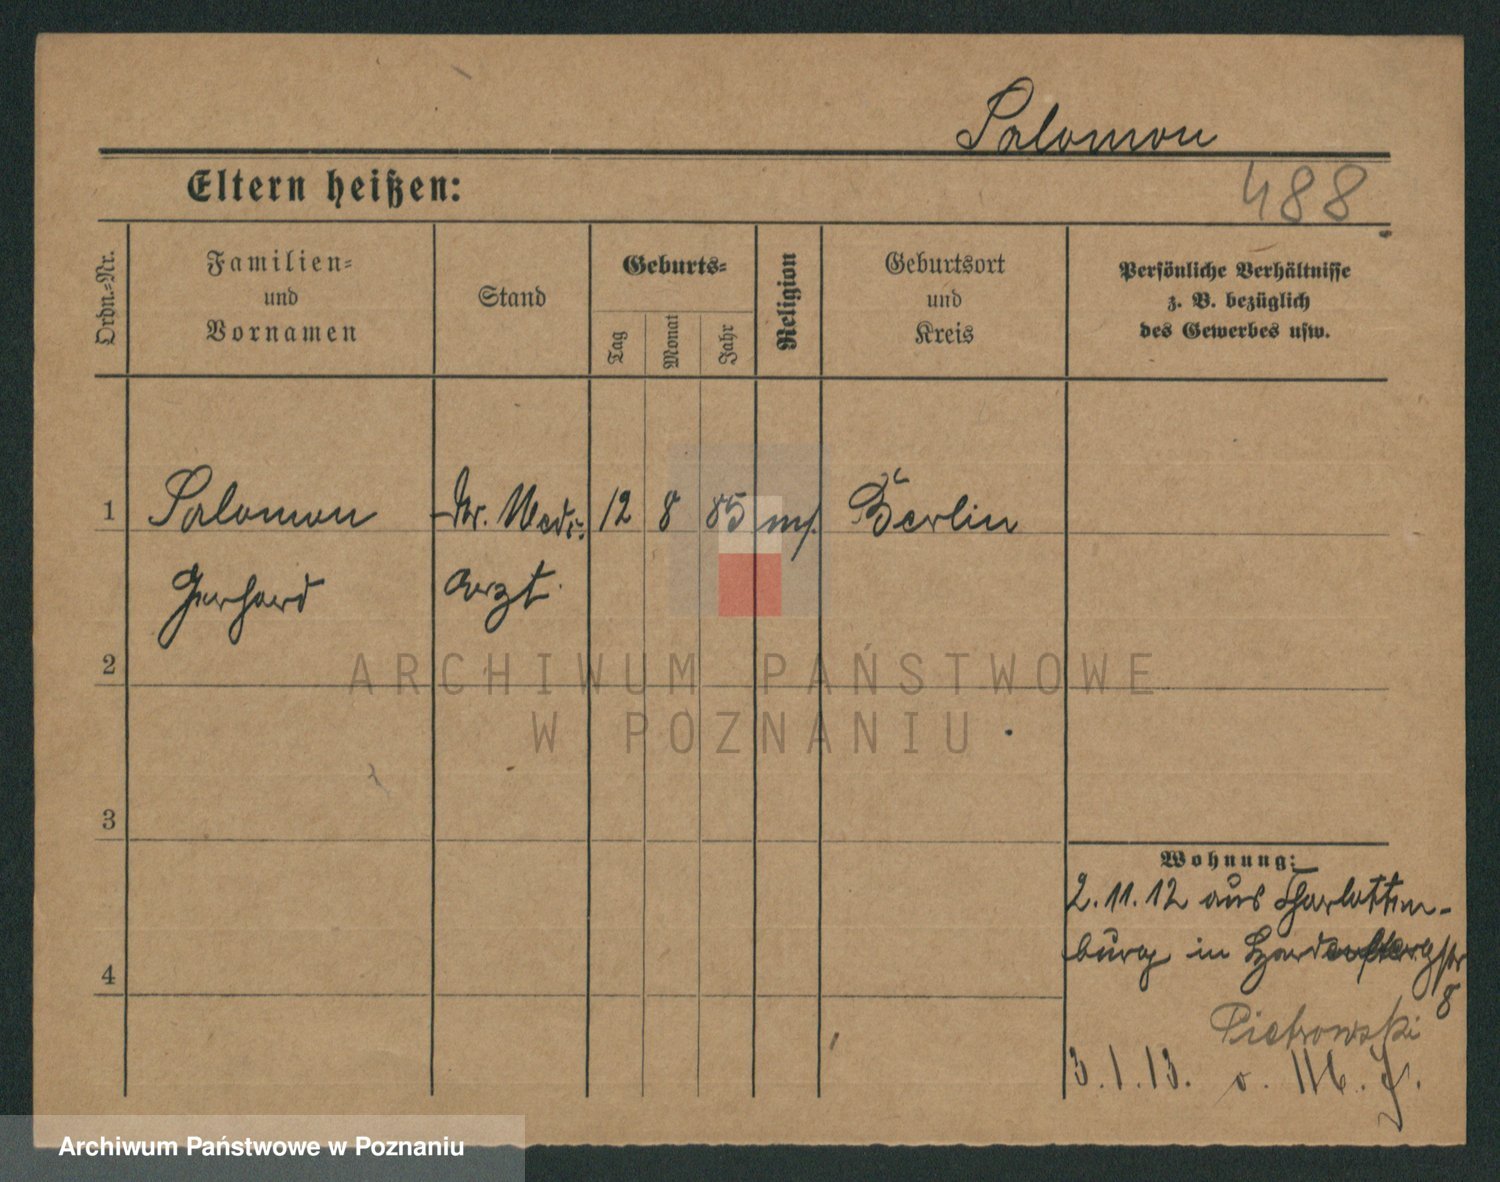 Salomon
Eltern heißen:
488
Ordn.-Nr.
Familien-
und
Vornamen
Stand
Geburts-
Tag
Monat
Jahr
Religion
Geburtsort
und
Kreis
Persönliche Verhältnisse
z. B. bezüglich
des Gewerbes usw.
1
Salomon
Dr. Med.
12
8
85
Berlin
Gerhard
Arzt
2
ARCHIWUM PAŃSTWOWE
W POZNANIU
3
Wohnung:
2.11.12 aus Charlotten-
burg in
8
4
Pietrowski
3.1.13.
Archiwum Państwowe w Poznaniu